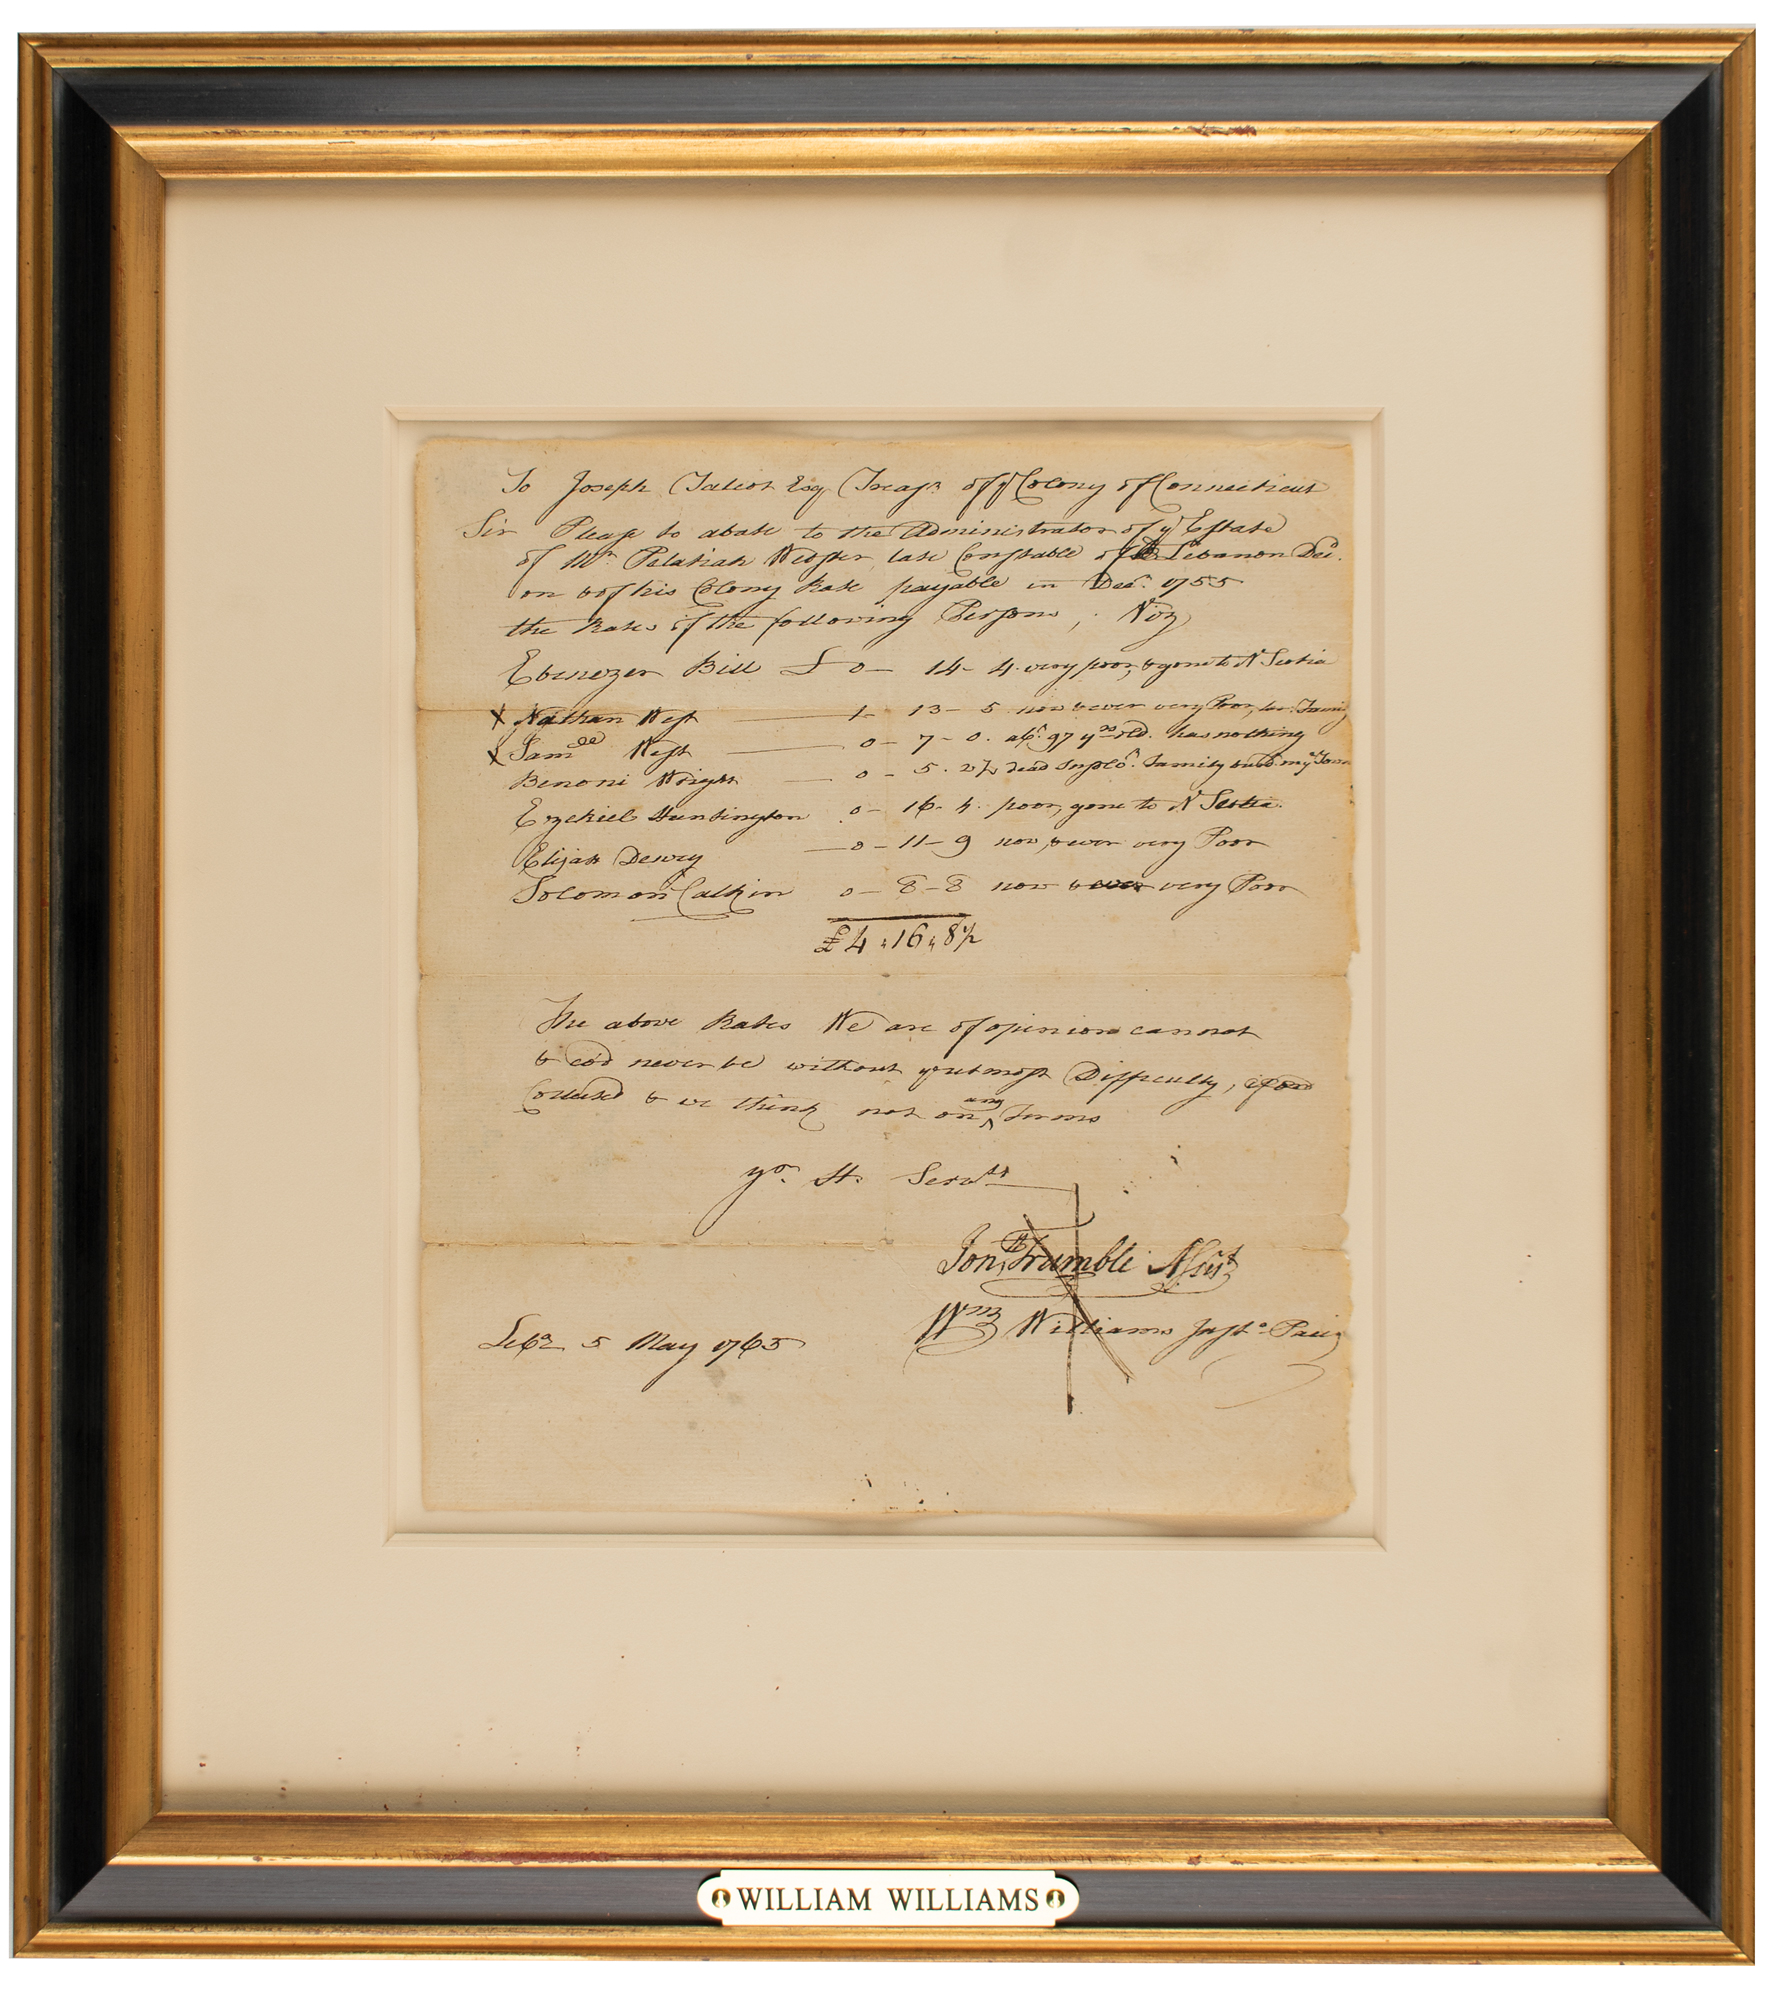 To Joseph Talcot Esq Treasr of ye Colony of Connecticut
Sir Please to abate to the Administrator of ye Estate
of Mr Pelatiah Webster, late Constable of Lebanon Decd.
on of his Colony Rate payable in Decr. 1755
the Rates of the following Persons, Viz
Ebenezer Bill £ 0 - 14 - 4 very poor, & gone to N Scotia
X Nathan West 1 - 13 - 5 now & ever very Poor,
X Samll West 0 - 7 - 0. abt. 97 yrs old. has nothing
Benoni Wright 0 - 5. 2½ dead Insolvt. Family
Ezekiel Huntington 0 - 16 - 4. poor, gone to N Scotia.
Elijah Dewey 0 - 11 - 9 now, & ever very Poor
Solomon Calkin 0 - 8 - 8 now & ever very Poor
£4,,16,,8½
The above Rates We are of opinion cannot
& cod never be without ye utmost Difficulty,
Collected & we think not on any Terms
yo. H. Servts
Jonth Trumble Assist
Wm Williams Just. Pacis
Leba 5 May 1765
WILLIAM WILLIAMS